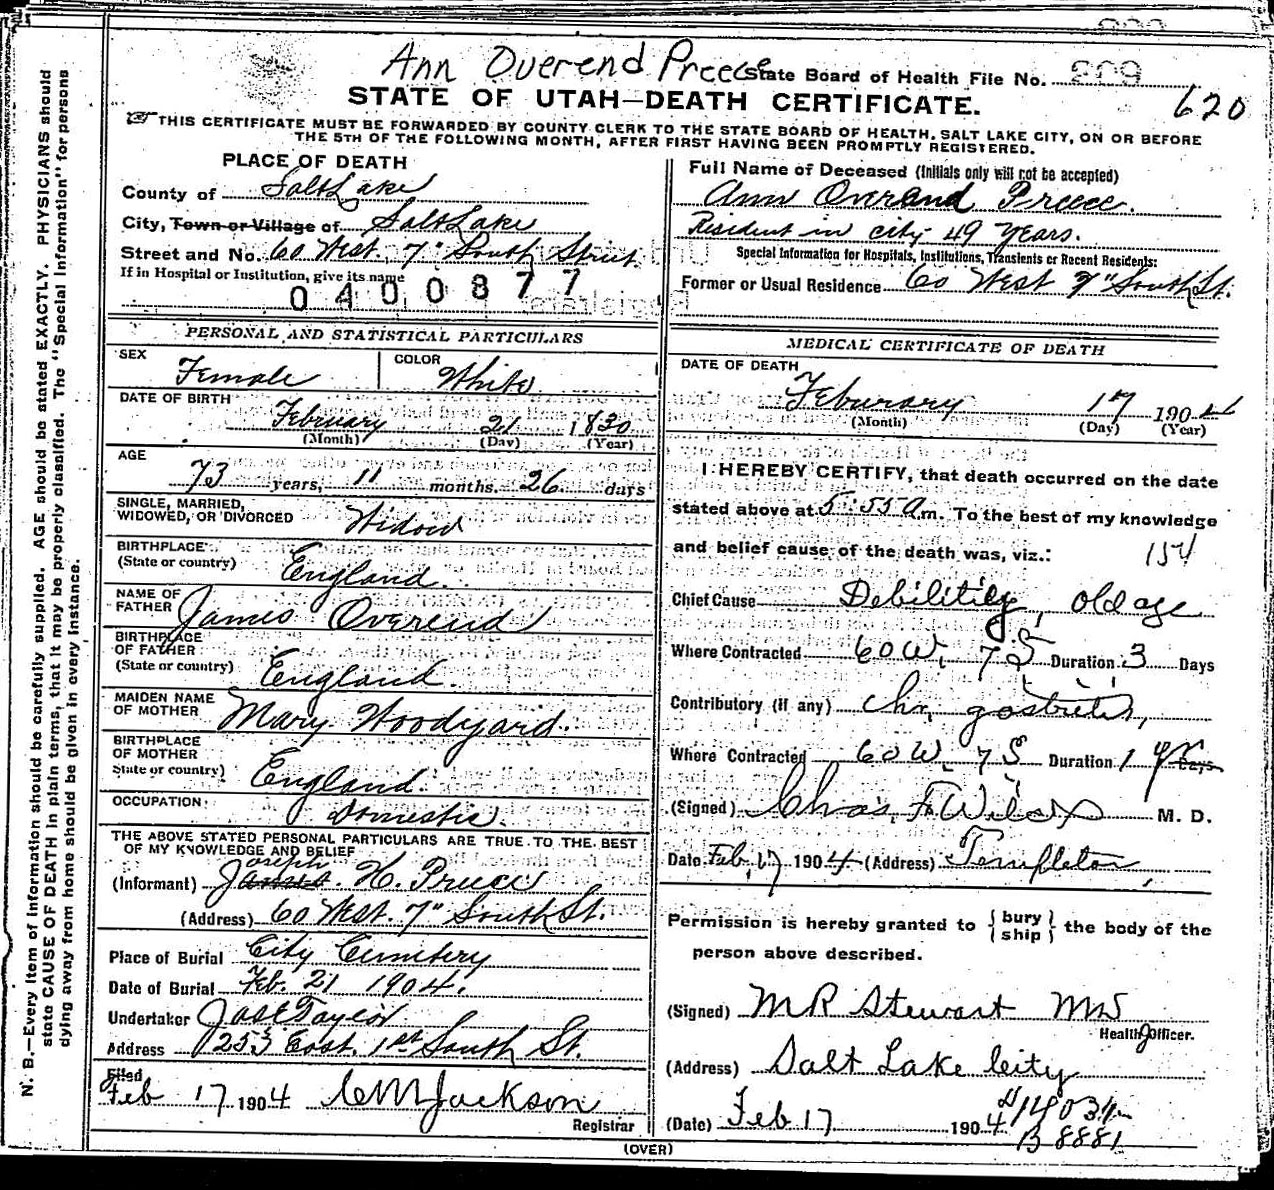 Ann Overend Preece State Board of Health File No. 209
STATE OF UTAH—DEATH CERTIFICATE. 620
THIS CERTIFICATE MUST BE FORWARDED BY COUNTY CLERK TO THE STATE BOARD OF HEALTH, SALT LAKE CITY, ON OR BEFORE
THE 5TH OF THE FOLLOWING MONTH, AFTER FIRST HAVING BEEN PROMPTLY REGISTERED.
PLACE OF DEATH
County of Salt Lake
City, Town or Village of Salt Lake
Street and No. 60 West 7" South Street
If in Hospital or Institution, give its name
0400877
PERSONAL AND STATISTICAL PARTICULARS
SEX Female COLOR White
DATE OF BIRTH
February 21 1830
(Month) (Day) (Year)
AGE
73 years, 11 months. 26 days
SINGLE, MARRIED,
WIDOWED, OR DIVORCED Widow
BIRTHPLACE
(State or country) England
NAME OF
FATHER James Overend
BIRTHPLACE
OF FATHER
(State or country) England.
MAIDEN NAME
OF MOTHER Mary Woodyard.
BIRTHPLACE
OF MOTHER
State or country) England.
OCCUPATION Domestic.
THE ABOVE STATED PERSONAL PARTICULARS ARE TRUE TO THE BEST
OF MY KNOWLEDGE AND BELIEF
Joseph
(Informant) James H. Preece
(Address) 60 West. 7" South St.
Place of Burial City Cemetery
Date of Burial Feb. 21 1904.
Undertaker Jos E Taylor
Address 253 East. 1st South St.
Filed
Feb 17 1904 C M Jackson
Registrar
Full Name of Deceased (Initials only will not be accepted)
Ann Overend Preece.
Resident in city 49 years.
Special Information for Hospitals, Institutions, Transients or Recent Residents:
Former or Usual Residence 60 West 7" South St.
MEDICAL CERTIFICATE OF DEATH
DATE OF DEATH
Feburary 17 1904
(Month) (Day) (Year)
I HEREBY CERTIFY, that death occurred on the date
stated above at 5:55 A.m. To the best of my knowledge
and belief cause of the death was, viz.: 154
Chief Cause Debility, old age
Where Contracted 60 W. 7 S. Duration 3 Days
Contributory (if any) Chr. gastritis,
Where Contracted 60 W. 7 S. Duration 1 yr Days
(Signed) Chas. F. Wilcox M. D.
Date Feb. 17 1904 (Address) Templeton,
Permission is hereby granted to { bury ship } the body of the
person above described.
(Signed) M R Stewart MD
Health Officer.
(Address) Salt Lake City
(Date) Feb 17 1904
B 8881
(OVER)
N. B.—Every item of information should be carefully supplied. AGE should be stated EXACTLY. PHYSICIANS should
state CAUSE OF DEATH in plain terms, that it may be properly classified. The "Special Information" for persons
dying away from home should be given in every instance.